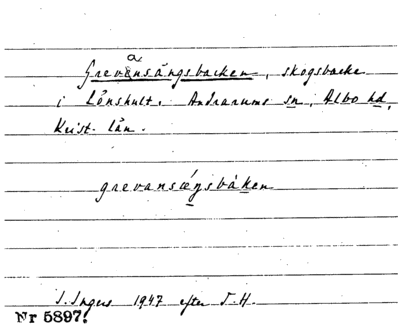 a
Grevensängsbacken, skogsbacke
i Lönshult. Andrarums sn, Albo hd,
Krist. län.
grevansæŋsbàken
I. Ingers 1947 efter T.H.
Nr 5897!